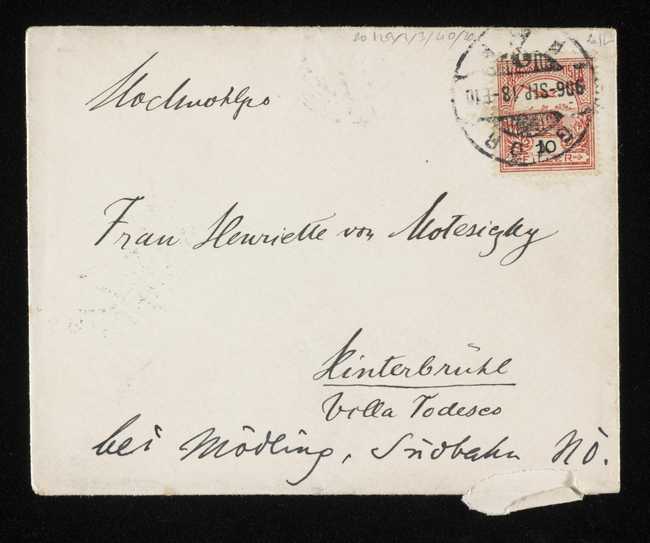 Hochwohlgeb
Frau Henriette von Motesiczky
Hinterbrühl
Villa Todesco
bei Mödling, Südbahn NÖ.
906 SEP. 18
10
FILLER